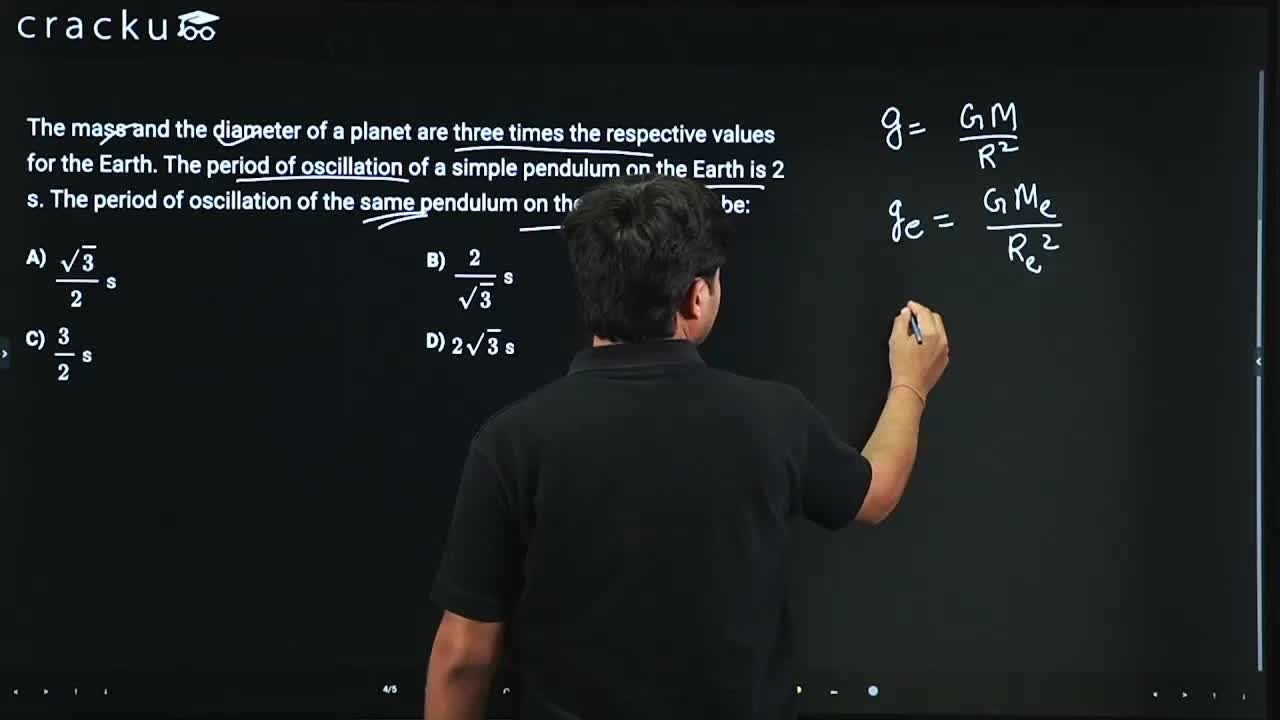 cracku
The mass and the diameter of a planet are three times the respective values
for the Earth. The period of oscillation of a simple pendulum on the Earth is 2
s. The period of oscillation of the same pendulum on the be:
A) √3/2 s
B) 2/√3 s
C) 3/2 s
D) 2√3 s
g = GM/R²
gₑ = GMₑ/Rₑ²
4/5